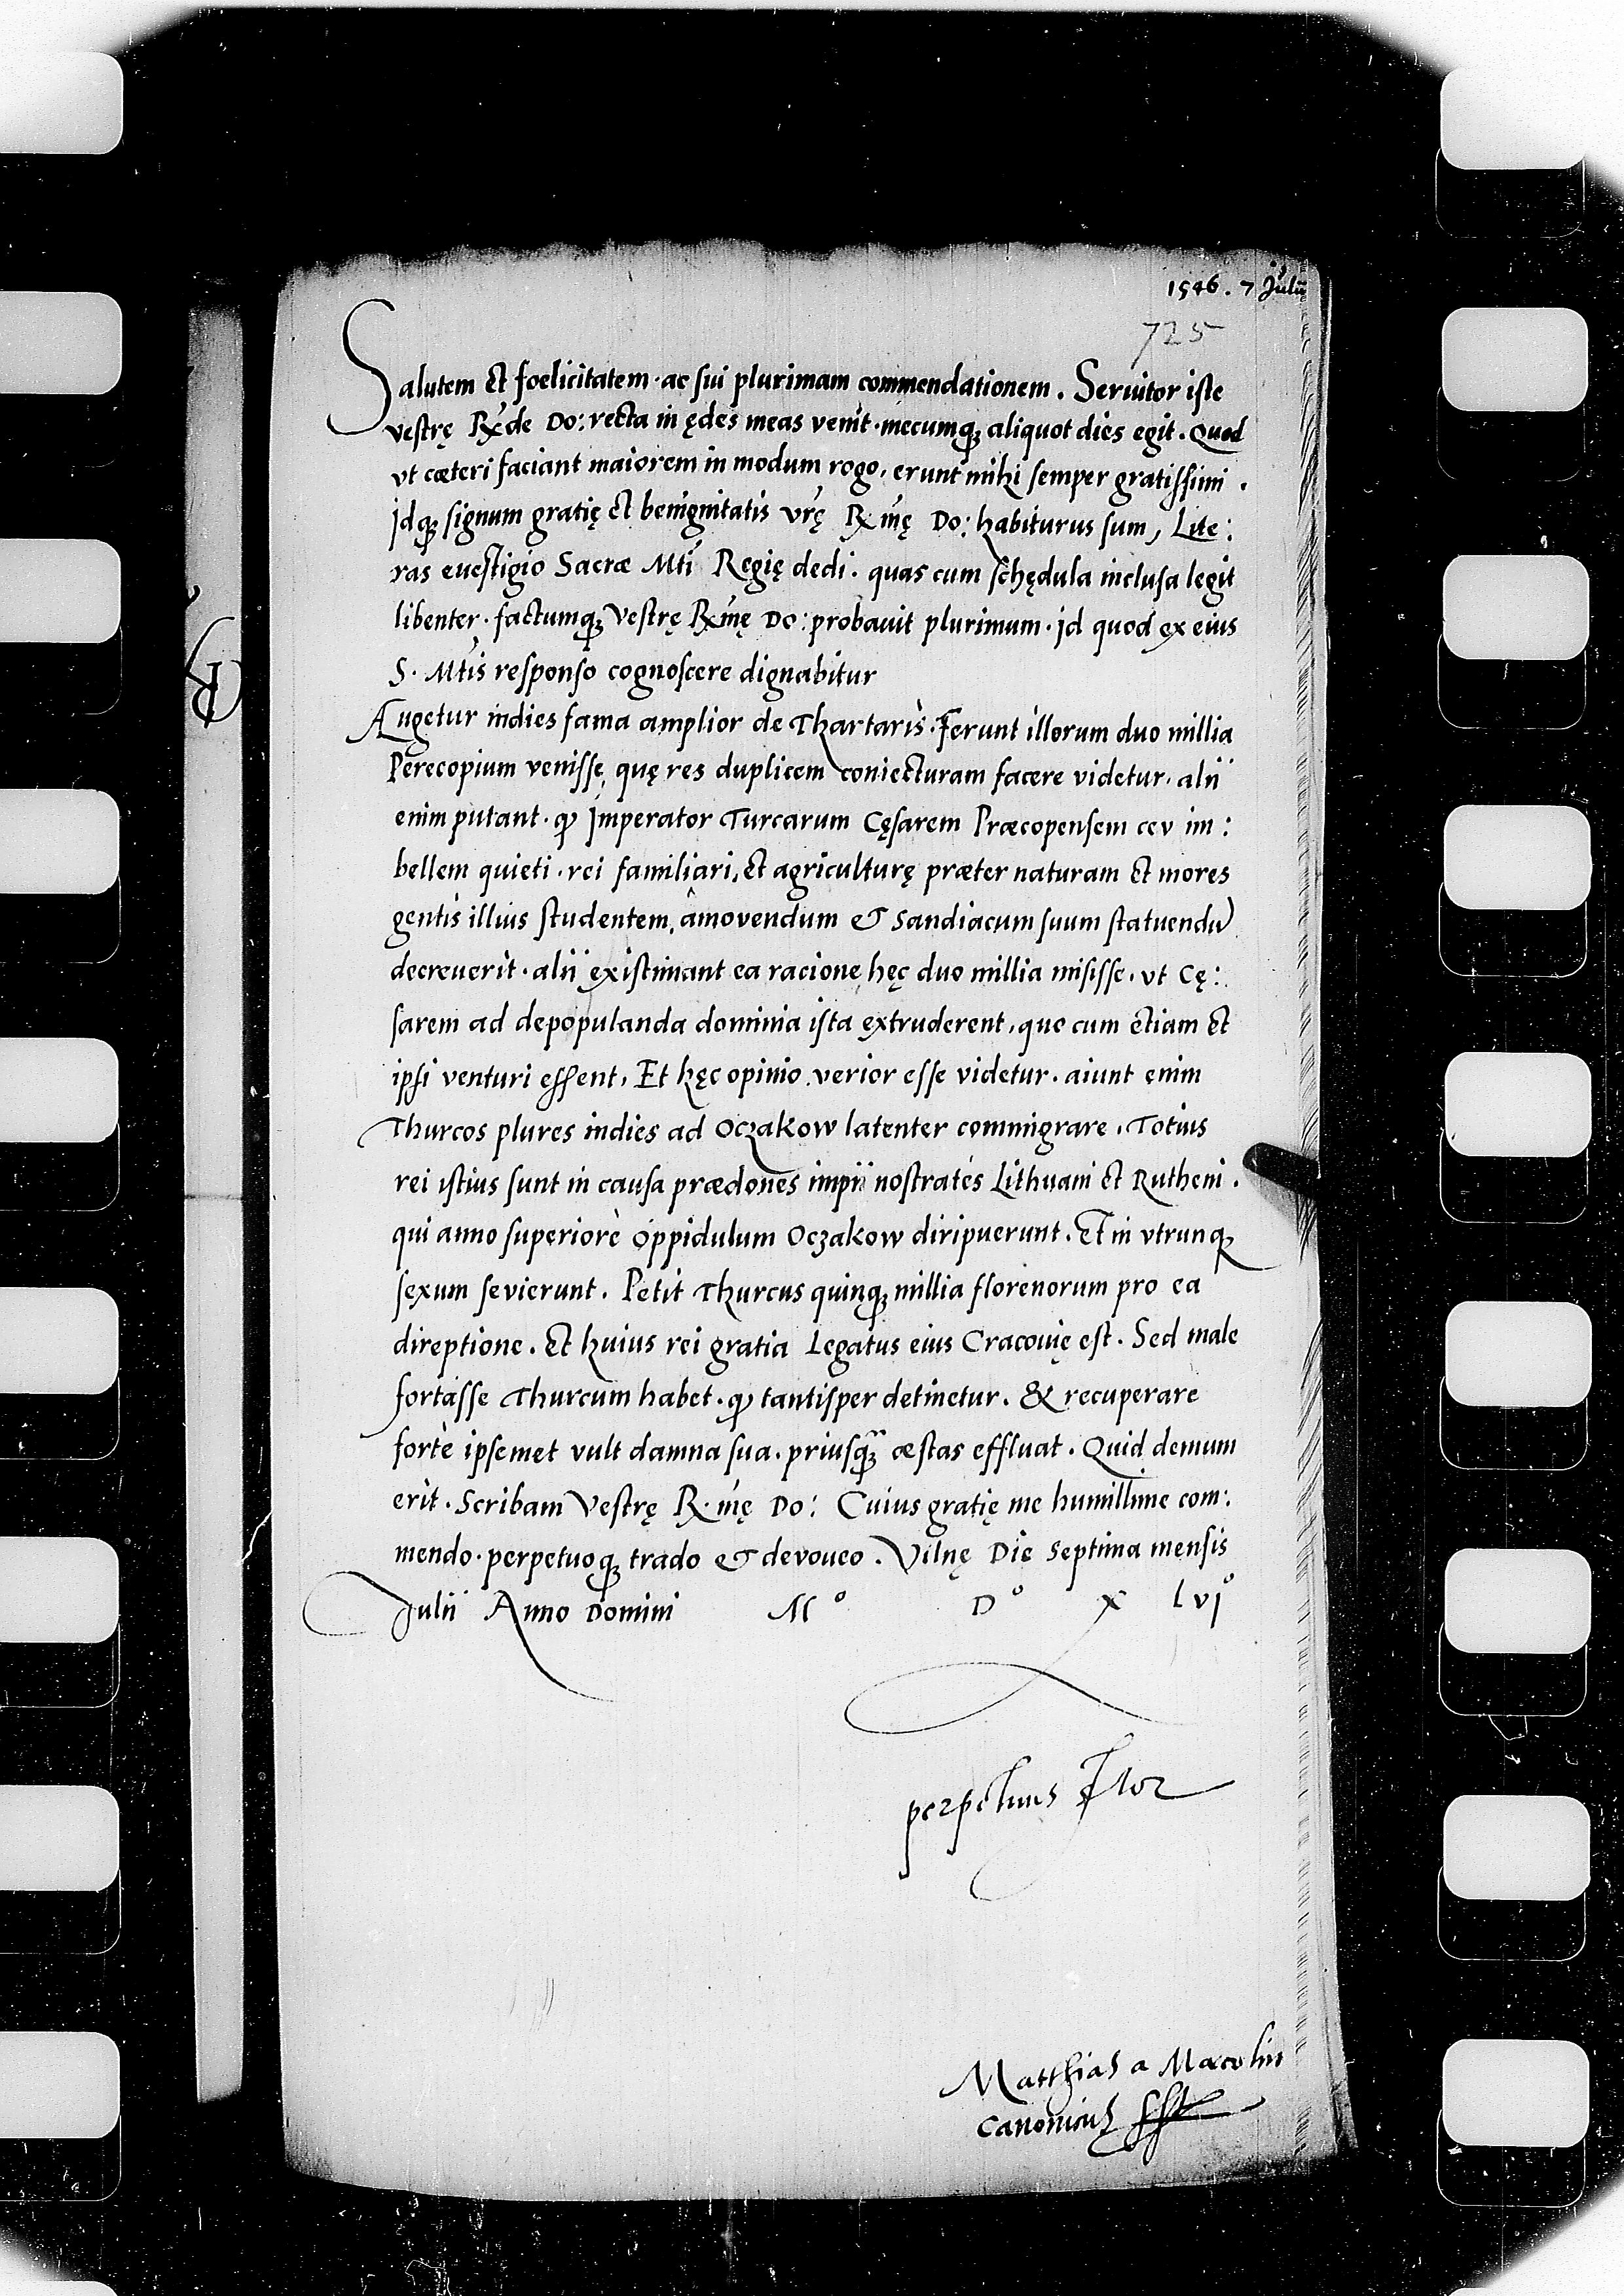 1546. 7 Julii
725
Salutem et foelicitatem. ac sui plurimam commendationem. Seruitor iste
vestrę Rx̃de Do: recta in ędes meas venit. mecumq̨ aliquot dies egit. Quod
vt cæteri faciant maiorem in modum rogo, erunt mihi semper gratissimi.
Jdq̨ signum gratię et benignitatis vrę Rx mę Do: habiturus sum, Lite:
ras euestigio Sacræ Mti Regię dedi. quas cum schędula inclusa legit
libenter. factumq̨ Vestrę Rxmę Do: probauit plurimum. id quod ex eius
S. Mtis responso cognoscere dignabitur
Augetur indies fama amplior de Thartaris. Ferunt illorum duo millia
Perecopium venisse, quę res duplicem coniecturam facere videtur. alii
enim putant. ꝙ Jmperator Turcarum Cęsarem Præcopensem cev im:
bellem quieti. rei familiari, et agriculturę præter naturam et mores
gentis illius studentem, âmovendum & Sandiacum suum statuendũ
decreuerit. alii existimant ea racione hęc duo millia misisse, vt Cę:
sarem ad depopulanda dominia ista extruderent, quo cum etiam et
ipsi venturi essent, Et hęc opinio verior esse videtur. aiunt enim
Thurcos plures indies ad Oczakow latenter commigrare, Totius
rei istius sunt in causa prædones impii nostrates Lithuani et Rutheni.
qui anno superiorè oppidulum Oczakow diripuerunt. Et in vtrunq̨
sexum sevierunt. Petit Thurcus quinq̨ millia florenorum pro ea
direptione. Et huius rei gratia Legatus eius Cracouię est. Sed male
fortasse Thurcum habet. ꝙ tantisper detinetur. & recuperare
fortè ipsemet vult damna sua. priusq̨ æstas effluat. Quid demum
erit. Scribam Vestrę R. mę Do: Cuius gratię me humillime com:
mendo. perpetuoq̨ trado & devoueo. Vilnę Die Septima mensis
Julii Anno Domini M° D° x Lvj°
perpetuus Srtor
Matthias a
Canonicus